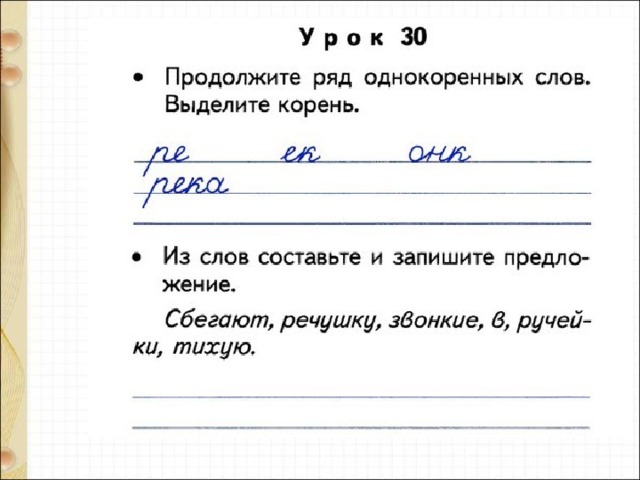 Урок 30
• Продолжите ряд однокоренных слов.
Выделите корень.
ре ек онк
река
• Из слов составьте и запишите предло-
жение.
Сбегают, речушку, звонкие, в, ручей-
ки, тихую.